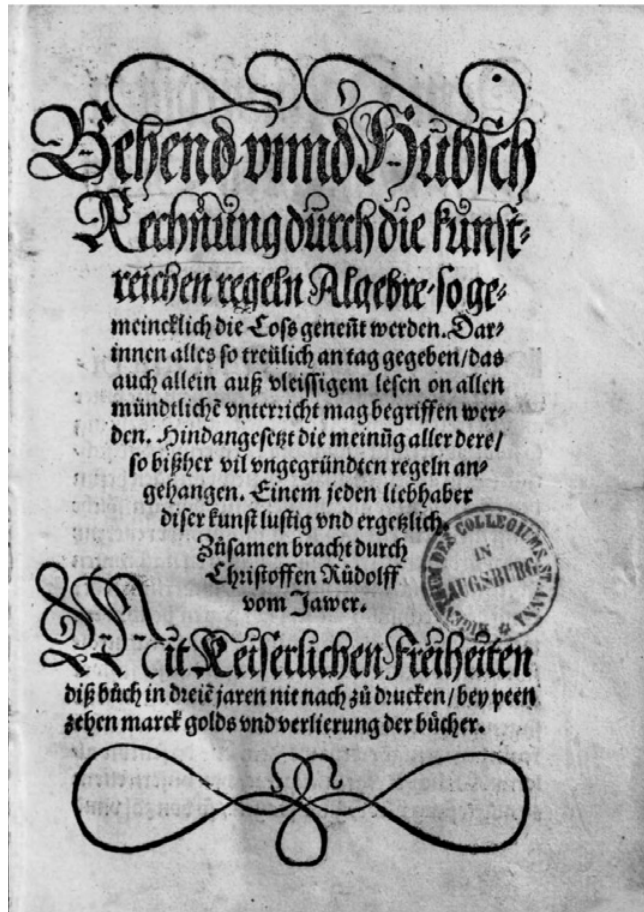 Behend vnnd Hubsch
Rechnung durch die kunst-
reichen regeln Algebre/so ge-
meincklich die Coss geneñt werden. Dar-
innen alles so treülich an tag gegeben/das
auch allein auß vleissigem lesen on allen
mündtlichẽ vnterricht mag begriffen wer-
den. Hindangesetzt die meinũg aller dere/
so bißher vil vngegründten regeln an-
gehangen. Einem jeden liebhaber
diser kunst lustig vnd ergetzlich.
Zůsamen bracht durch
Christoffen Růdolff
vom Jawer.
EIGENTHUM DES COLLEGIUMS ST. ANNA
IN
AUGSBURG
Mit Keiserlichen Freiheiten
diß bůch in dreiẽ jaren nit nach zů drucken/bey peen
zehen marck golds vnd verlierung der bücher.